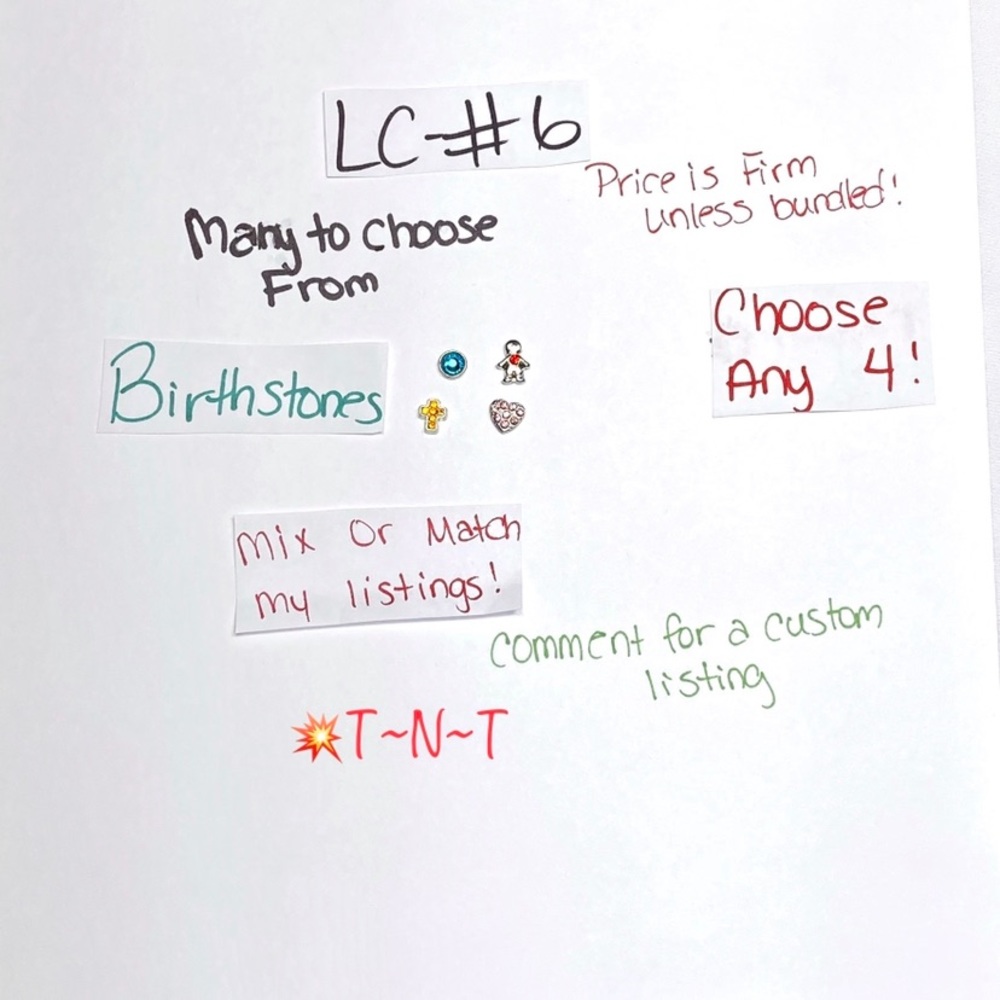 LC-#6
Price is Firm
unless bundled!
Many to choose
From
Choose
Any 4!
Birthstones
Mix Or Match
my listings!
Comment for a custom
listing
💥T~N~T